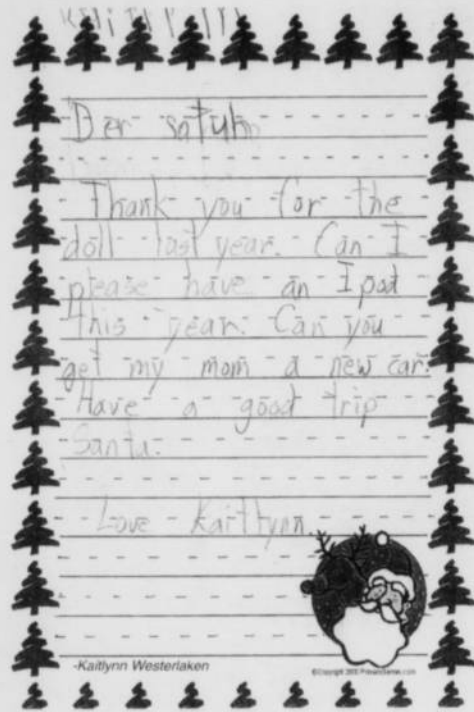 Der satuhn
Thank you for the
doll last year. Can I
please have an I pod
this year. Can you
get my mom a new car.
Have a good trip
Santa.
Love Kaitlynn
-Kaitlynn Westerlaken